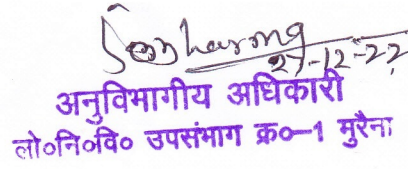 27-12-22
अनुविभागीय अधिकारी
लो०नि०वि० उपसंभाग क्र०-1 मुरैना